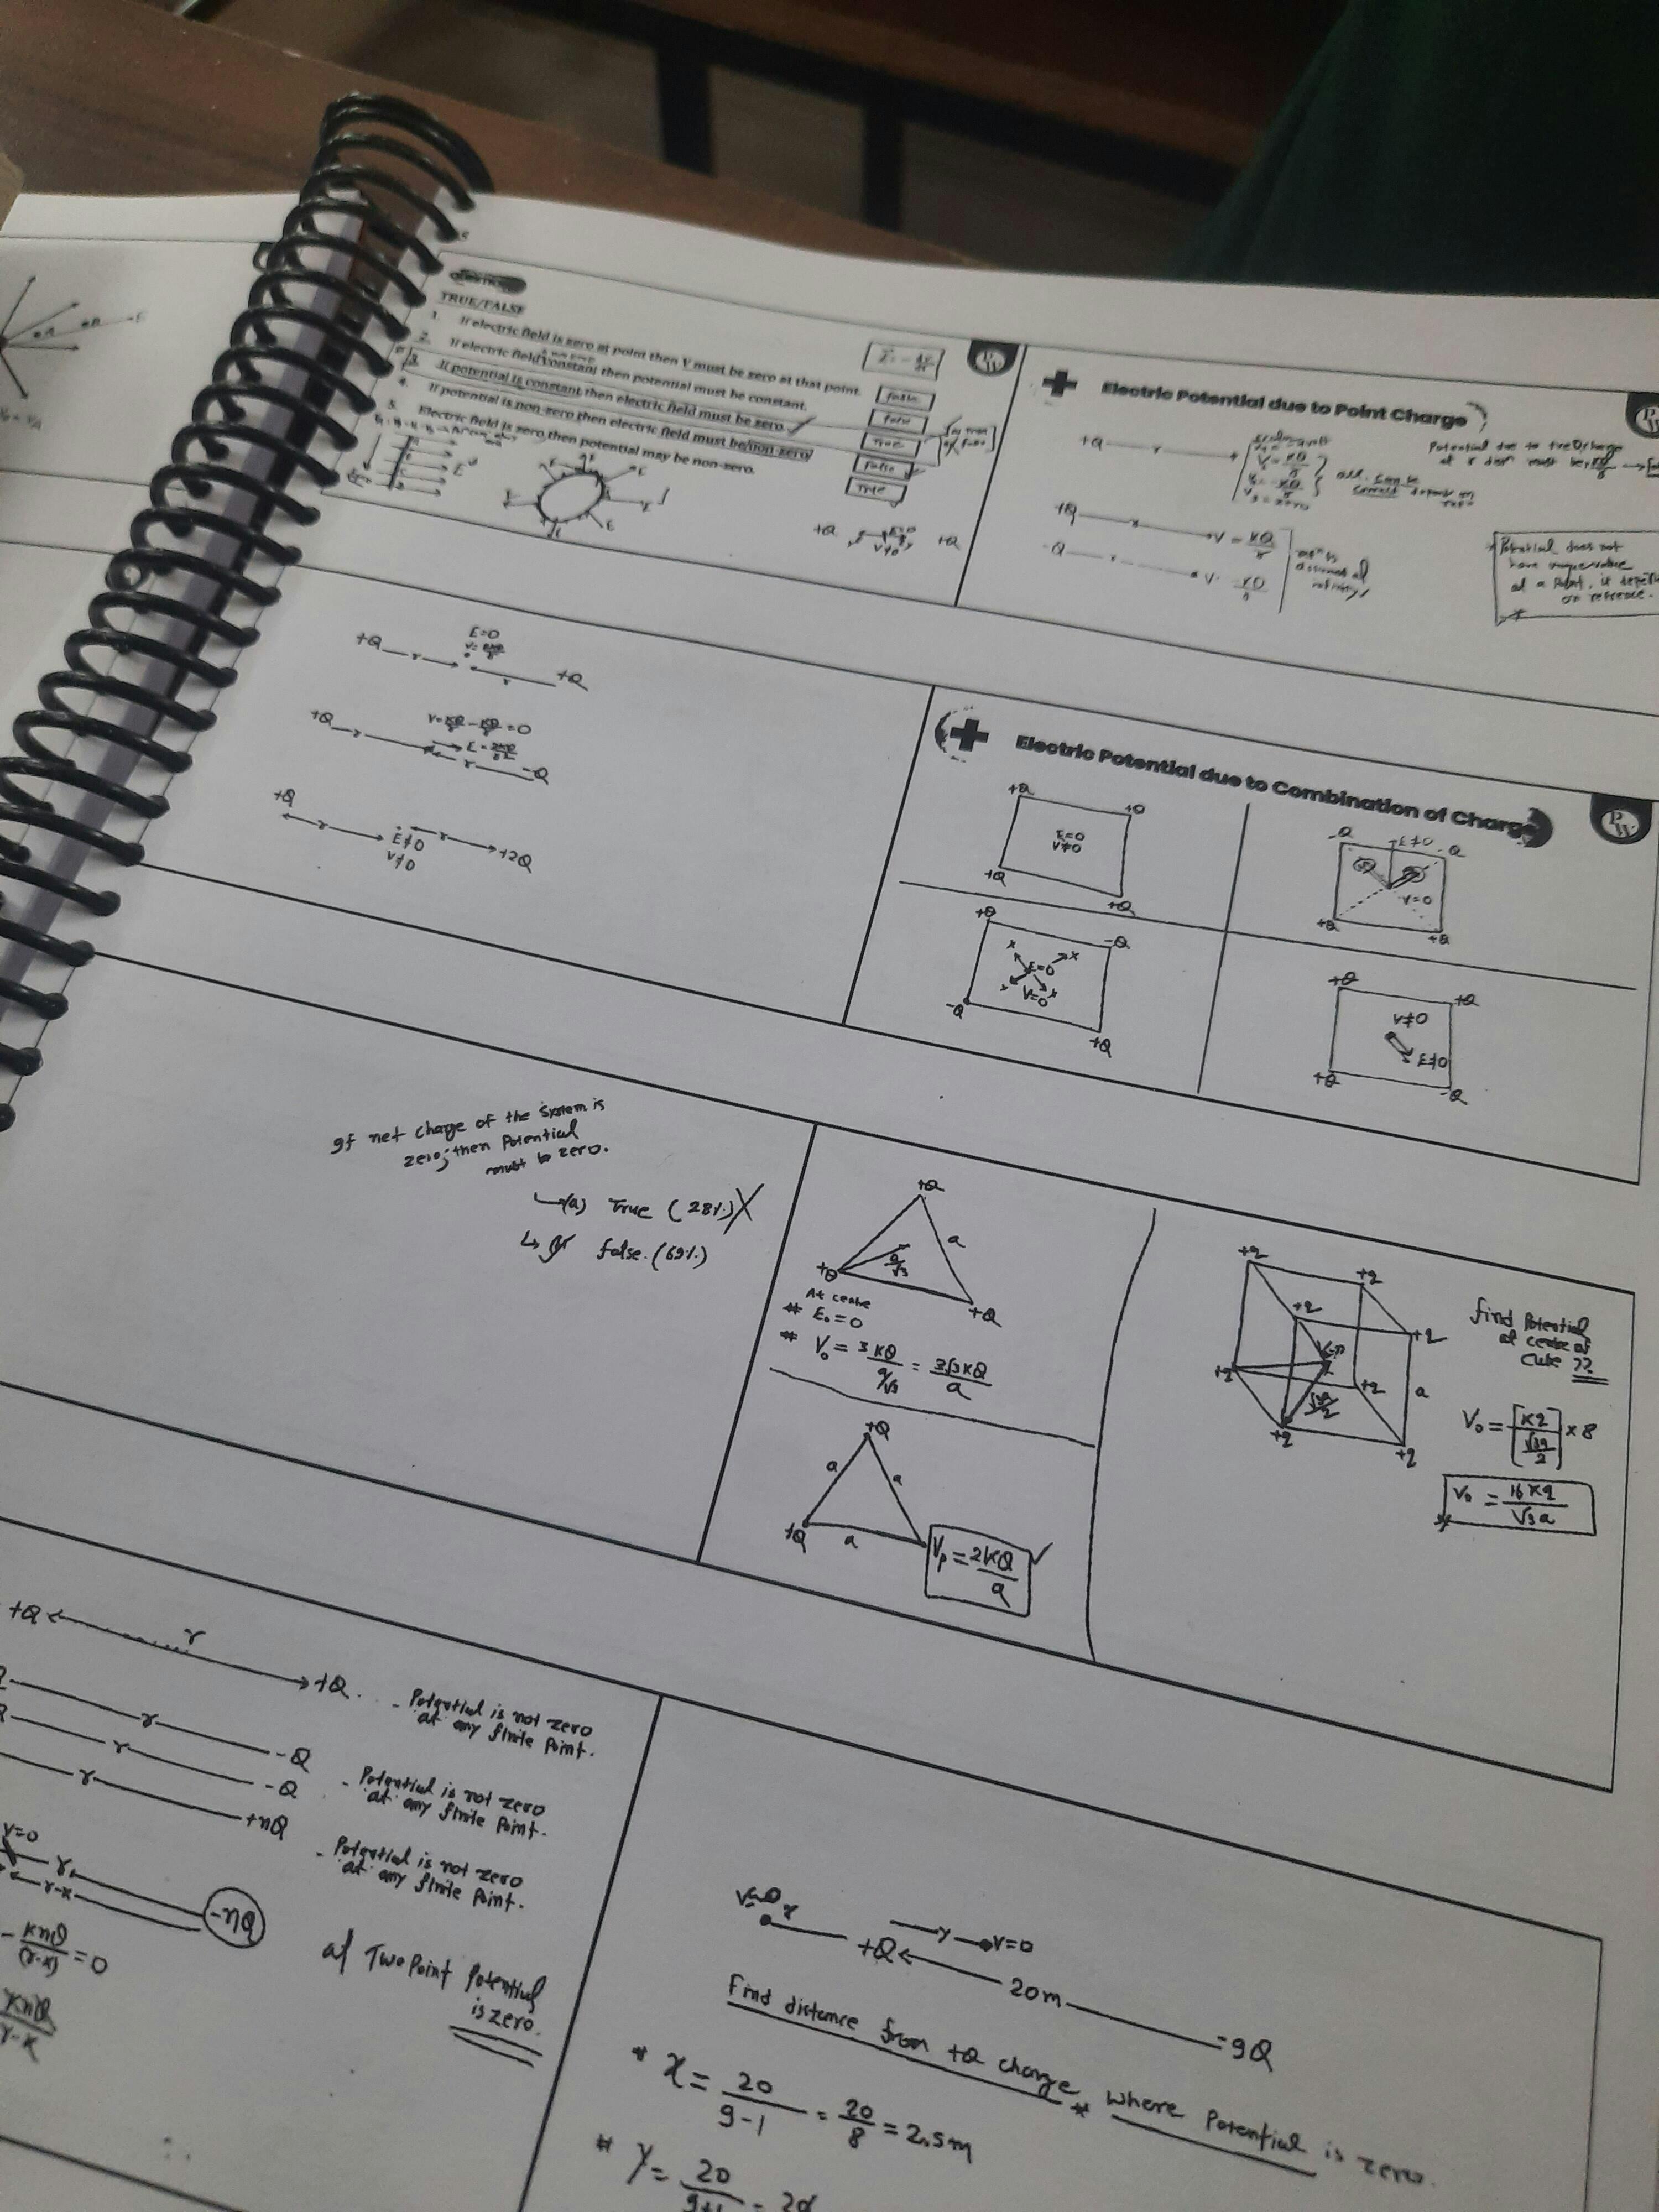 TRUE/FALSE
1. If electric field is zero at point then V must be zero at that point.
false
2. If electric field constant, then potential must be constant.
false
3. If potential is constant then electric field must be zero.
True
4. If potential is non-zero then electric field must be non-zero
false
5. Electric field is zero then potential may be non-zero.
True
E
E
+Q
E=0
V≠0
+Q
PW
Electric Potential due to Point Charge
+Q r
Potential due to +ve Q charge
all can be
correct depend on
+Q r V = KQ/r
-Q r V
Potential does not
have unique value
at a point, it
on reference.
+Q r
E=0
r +Q
+Q r
V = KQ/r - KQ/r = 0
E = 2KQ/r²
r -Q
+Q
r
E≠0
V≠0
r +2Q
Electric Potential due to Combination of Charge
PW
+Q +Q
E=0
V≠0
+Q +Q
-Q E≠0 -Q
V=0
+Q +Q
+Q -Q
x x
E=0
V=0
x
-Q +Q
+Q +Q
V≠0
E≠0
+Q -Q
If net charge of the system is
zero; then Potential
must be zero.
(a) True (28%) X
false. (69%)
+Q
a
a/√3
+Q +Q
At centre
# E₀ = 0
# V₀ = 3KQ/(a/√3) = 3√3KQ/a
+Q
a a
+Q a
Vp = 2KQ/a ✓
+q +q
+q +q
+q +q
+q +q
a
√3a/2
find Potential
at centre of
Cube ??
V₀ = [Kq/(√3a/2)] × 8
V₀ = 16Kq/√3a
+Q r +Q
- Potential is not zero
at any finite Point.
r -Q
r -Q
- Potential is not zero
at any finite Point.
r +nQ
- Potential is not zero
at any finite Point.
V=0
r
r-x
-nQ
- KnQ/(r-x) = 0
KnQ/r-x
at Two Point Potential
is zero.
x
y V=0
+Q 20m -9Q
Find distance from +Q charge where Potential is zero.
* x = 20/9-1 = 20/8 = 2.5m
# y = 20/9+1 =